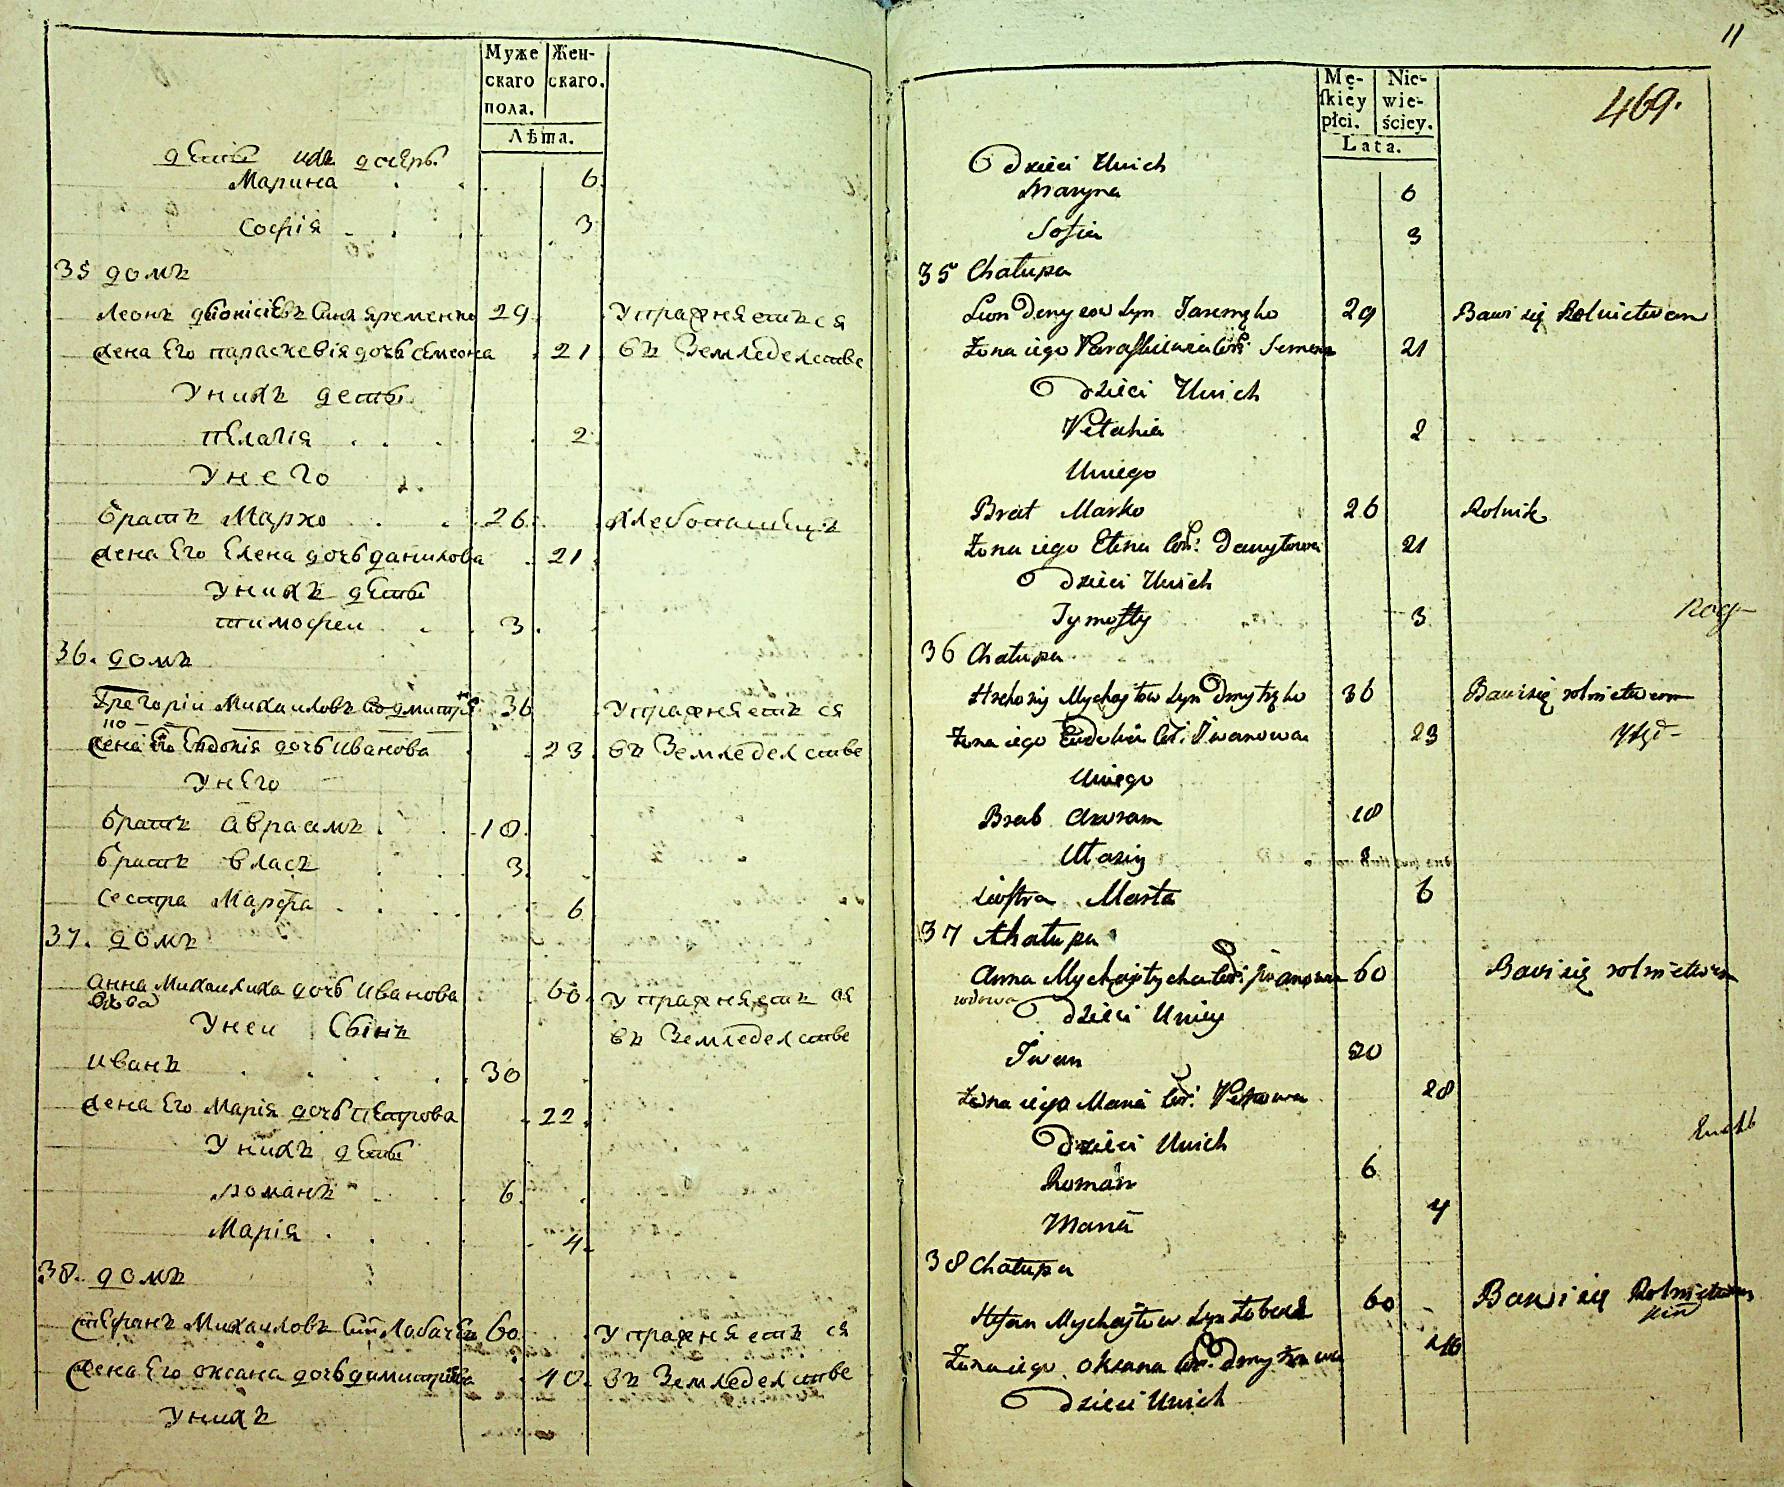 Муже Жен-
скаго скаго.
пола.
Лѣта.
дети ихъ дочерѣ
Марина 6.
Софія 3
35 домъ
Леонъ Діонісіевъ Сынъ Яременко 29. Упражняется
жена Его Параскевія дочь Семеона 21. въ Земледелстве
У нихъ дети
Пелагія 2.
У него
братъ Марко 26. Хлебопашецъ
жена Его Елена дочь Данилова 21.
У нихъ дети
Тимофеи 3.
36. домъ
Григоріи Михаиловъ 36 Упражняется
жена Его Евдокія дочь Иванова 23. въ Земледелстве
У Него
братъ Авраамъ 18.
братъ Власъ 3.
Сестра Марфа 6
37. домъ
Анна Михаилиха дочь Иванова 60. Упражняется
вдова
У неи Сынъ въ Земледелстве
Иванъ 30
жена Его Марія дочь Петрова 22.
У нихъ дети
Романъ 6.
Марія 4.
38. домъ
Стефанъ Михаиловъ Сынъ 60. Упражняется
жена Его Оксана дочь Димитріева 40. въ Земледелстве
У нихъ
11
469.
Mę- Nie-
ſkiey wie-
płci. ściey.
Lata.
Dzieci Unich
Maryna 6
Sofia 3
35 Chałupa
Leon Denysow Syn Jaremko 29 Bawi się Rolnictwem
Żona iego Paraskiewia Cor: Semena 21
Dzieci Unich
Pelahia 2
Uniego
Brat Marko 26 Rolnik
Żona iego Elena Cor: Danyłowa 21
Dzieci Unich
Tymofty 3
36 Chałupa
Hrehory Mychayłow Syn Dmytrko 36 Bawi się rolnictwem
Żona iego Eudokia Cor: Iwanowa 23
Uniego
Brat Awram 18
Ułasiy 8
Siostra Marta 6
37 Chałupa
Anna Mychayłycha Cor: Iwanowa 60 Bawi się rolnictwem
wdowa
Dzieci Uniey
Iwan 30
Żona iego Maria Cor: Petrowa 28
Dzieci Unich
Roman 6
Maria 4
38 Chałupa
Stefan Mychayłow Syn 60 Bawi się Rolnictwem
Żona iego Oksana Cor: Dmytrowa
Dzieci Unich